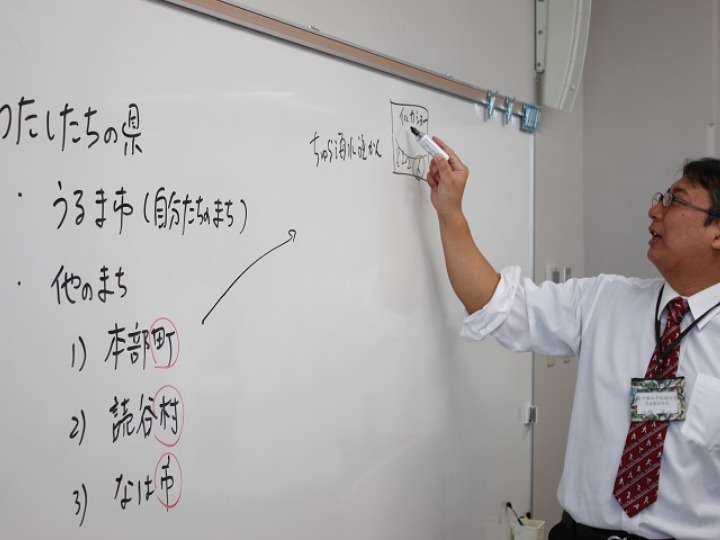 わたしたちの県
・うるま市(自分たちのまち)
・他のまち
1) 本部町
2) 読谷村
3) なは市
ちゅら海水族かん
イルカショー